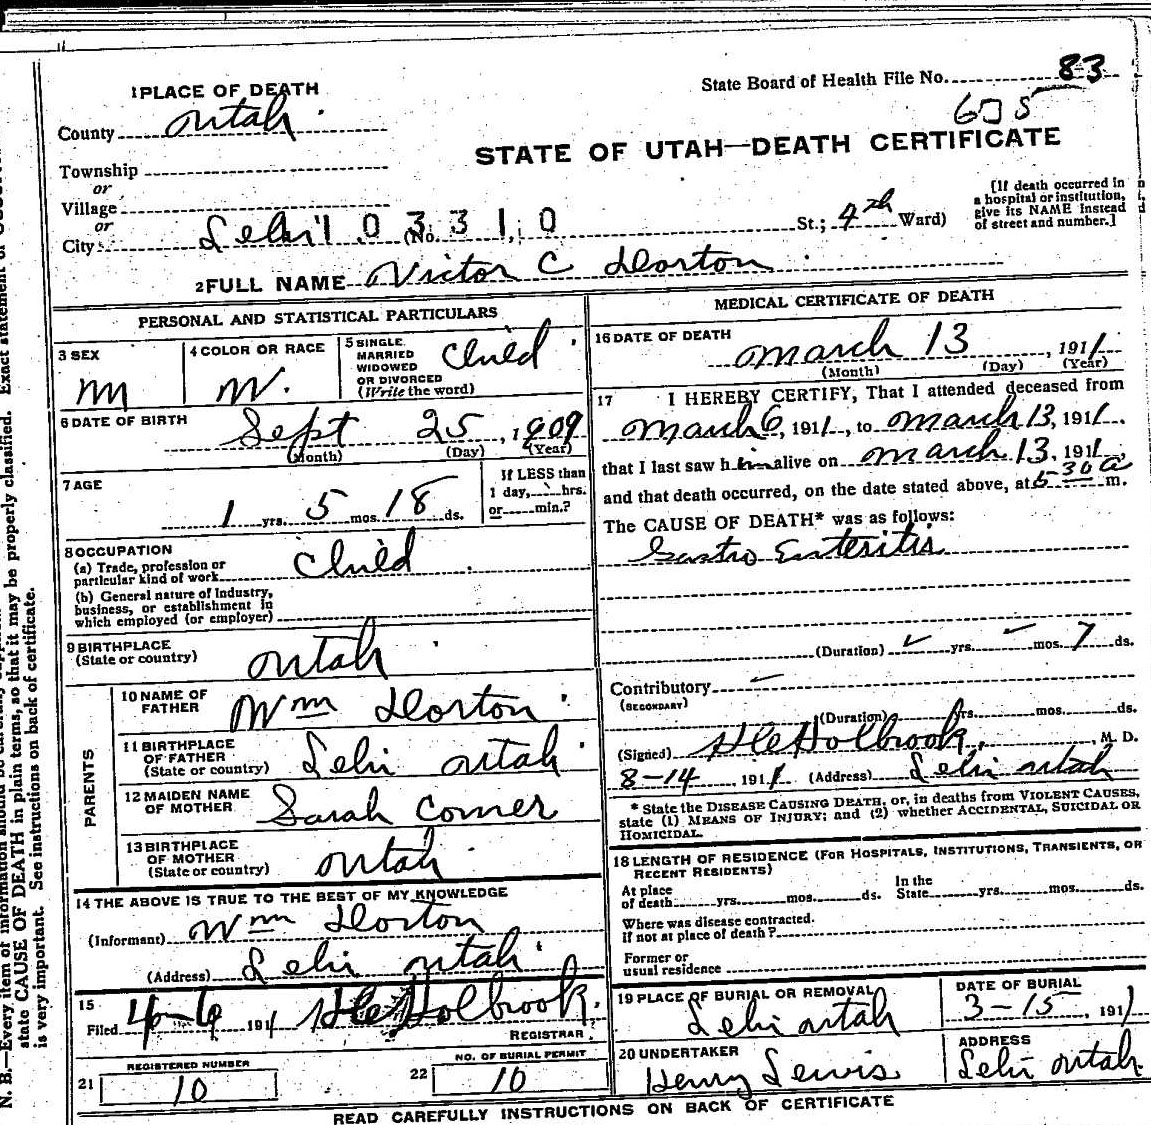 State Board of Health File No. 83
635
1 PLACE OF DEATH
County Utah
STATE OF UTAH—DEATH CERTIFICATE
Township
or
Village
or
City Lehi (No. St.; 4th Ward)
1 0 3 3 1 0
[If death occurred in a hospital or institution, give its NAME instead of street and number.]
2 FULL NAME Victor C Dorton
PERSONAL AND STATISTICAL PARTICULARS
3 SEX
m
4 COLOR OR RACE
W.
5 SINGLE, MARRIED WIDOWED OR DIVORCED (Write the word)
Child
6 DATE OF BIRTH
Sept 25, 1909
(Month) (Day) (Year)
7 AGE
1 yrs. 5 mos. 18 ds.
If LESS than 1 day, hrs. or min.?
8 OCCUPATION
(a) Trade, profession or particular kind of work Child
(b) General nature of Industry, business, or establishment in which employed (or employer)
9 BIRTHPLACE
(State or country) Utah
PARENTS
10 NAME OF FATHER Wm Dorton
11 BIRTHPLACE OF FATHER (State or country) Lehi Utah
12 MAIDEN NAME OF MOTHER Sarah Comer
13 BIRTHPLACE OF MOTHER (State or country) Utah
14 THE ABOVE IS TRUE TO THE BEST OF MY KNOWLEDGE
(Informant) Wm Dorton
(Address) Lehi Utah
15
Filed 4-6 1911 Holbrook.
REGISTRAR.
21 REGISTERED NUMBER
10
22 NO. OF BURIAL PERMIT
10
MEDICAL CERTIFICATE OF DEATH
16 DATE OF DEATH
March 13, 1911
(Month) (Day) (Year)
17 I HEREBY CERTIFY, That I attended deceased from
March 6, 1911, to March 13, 1911.
that I last saw him alive on March 13, 1911,
and that death occurred, on the date stated above, at 5 30 a m.
The CAUSE OF DEATH* was as follows:
Gastro Enteritis
(Duration) yrs. mos. 7 ds.
Contributory
(SECONDARY)
(Duration) yrs. mos. ds.
(Signed) Holbrook, M. D.
8-14, 1911 (Address) Lehi Utah
* State the DISEASE CAUSING DEATH, or, in deaths from VIOLENT CAUSES,
state (1) MEANS OF INJURY; and (2) whether ACCIDENTAL, SUICIDAL OR
HOMICIDAL.
18 LENGTH OF RESIDENCE (FOR HOSPITALS, INSTITUTIONS, TRANSIENTS, OR RECENT RESIDENTS)
At place of death yrs. mos. ds. In the State yrs. mos. ds.
Where was disease contracted. If not at place of death?
Former or usual residence
19 PLACE OF BURIAL OR REMOVAL
Lehi Utah
DATE OF BURIAL
3-15, 1911
20 UNDERTAKER
Henry Lewis
ADDRESS
Lehi Utah.
READ CAREFULLY INSTRUCTIONS ON BACK OF CERTIFICATE
state CAUSE OF DEATH in plain terms, so that it may be properly classified. Exact statement of
is very important. See instructions on back of certificate.